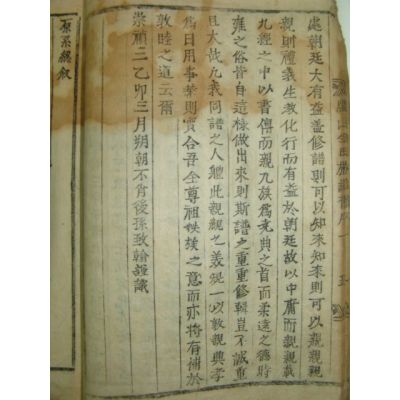 處朝廷大有益盖修譜則可以知來知來則可以親親親
親則禮義生教化行而有益於朝廷故以中庸而親親載
九經之中以書傳而親九族爲堯典之首而柔遠之德時
雍之俗皆自這樣做出來則斯譜之重重修輯豈不誠重
且大哉凡我同譜之人軆此親親之義湜一以敦親典孝
爲日用事業則實合吾全尊祖收族之意而亦將有補於
敦睦之道云爾
崇禎三乙卯三月朔朝不肖後孫致翰謹識